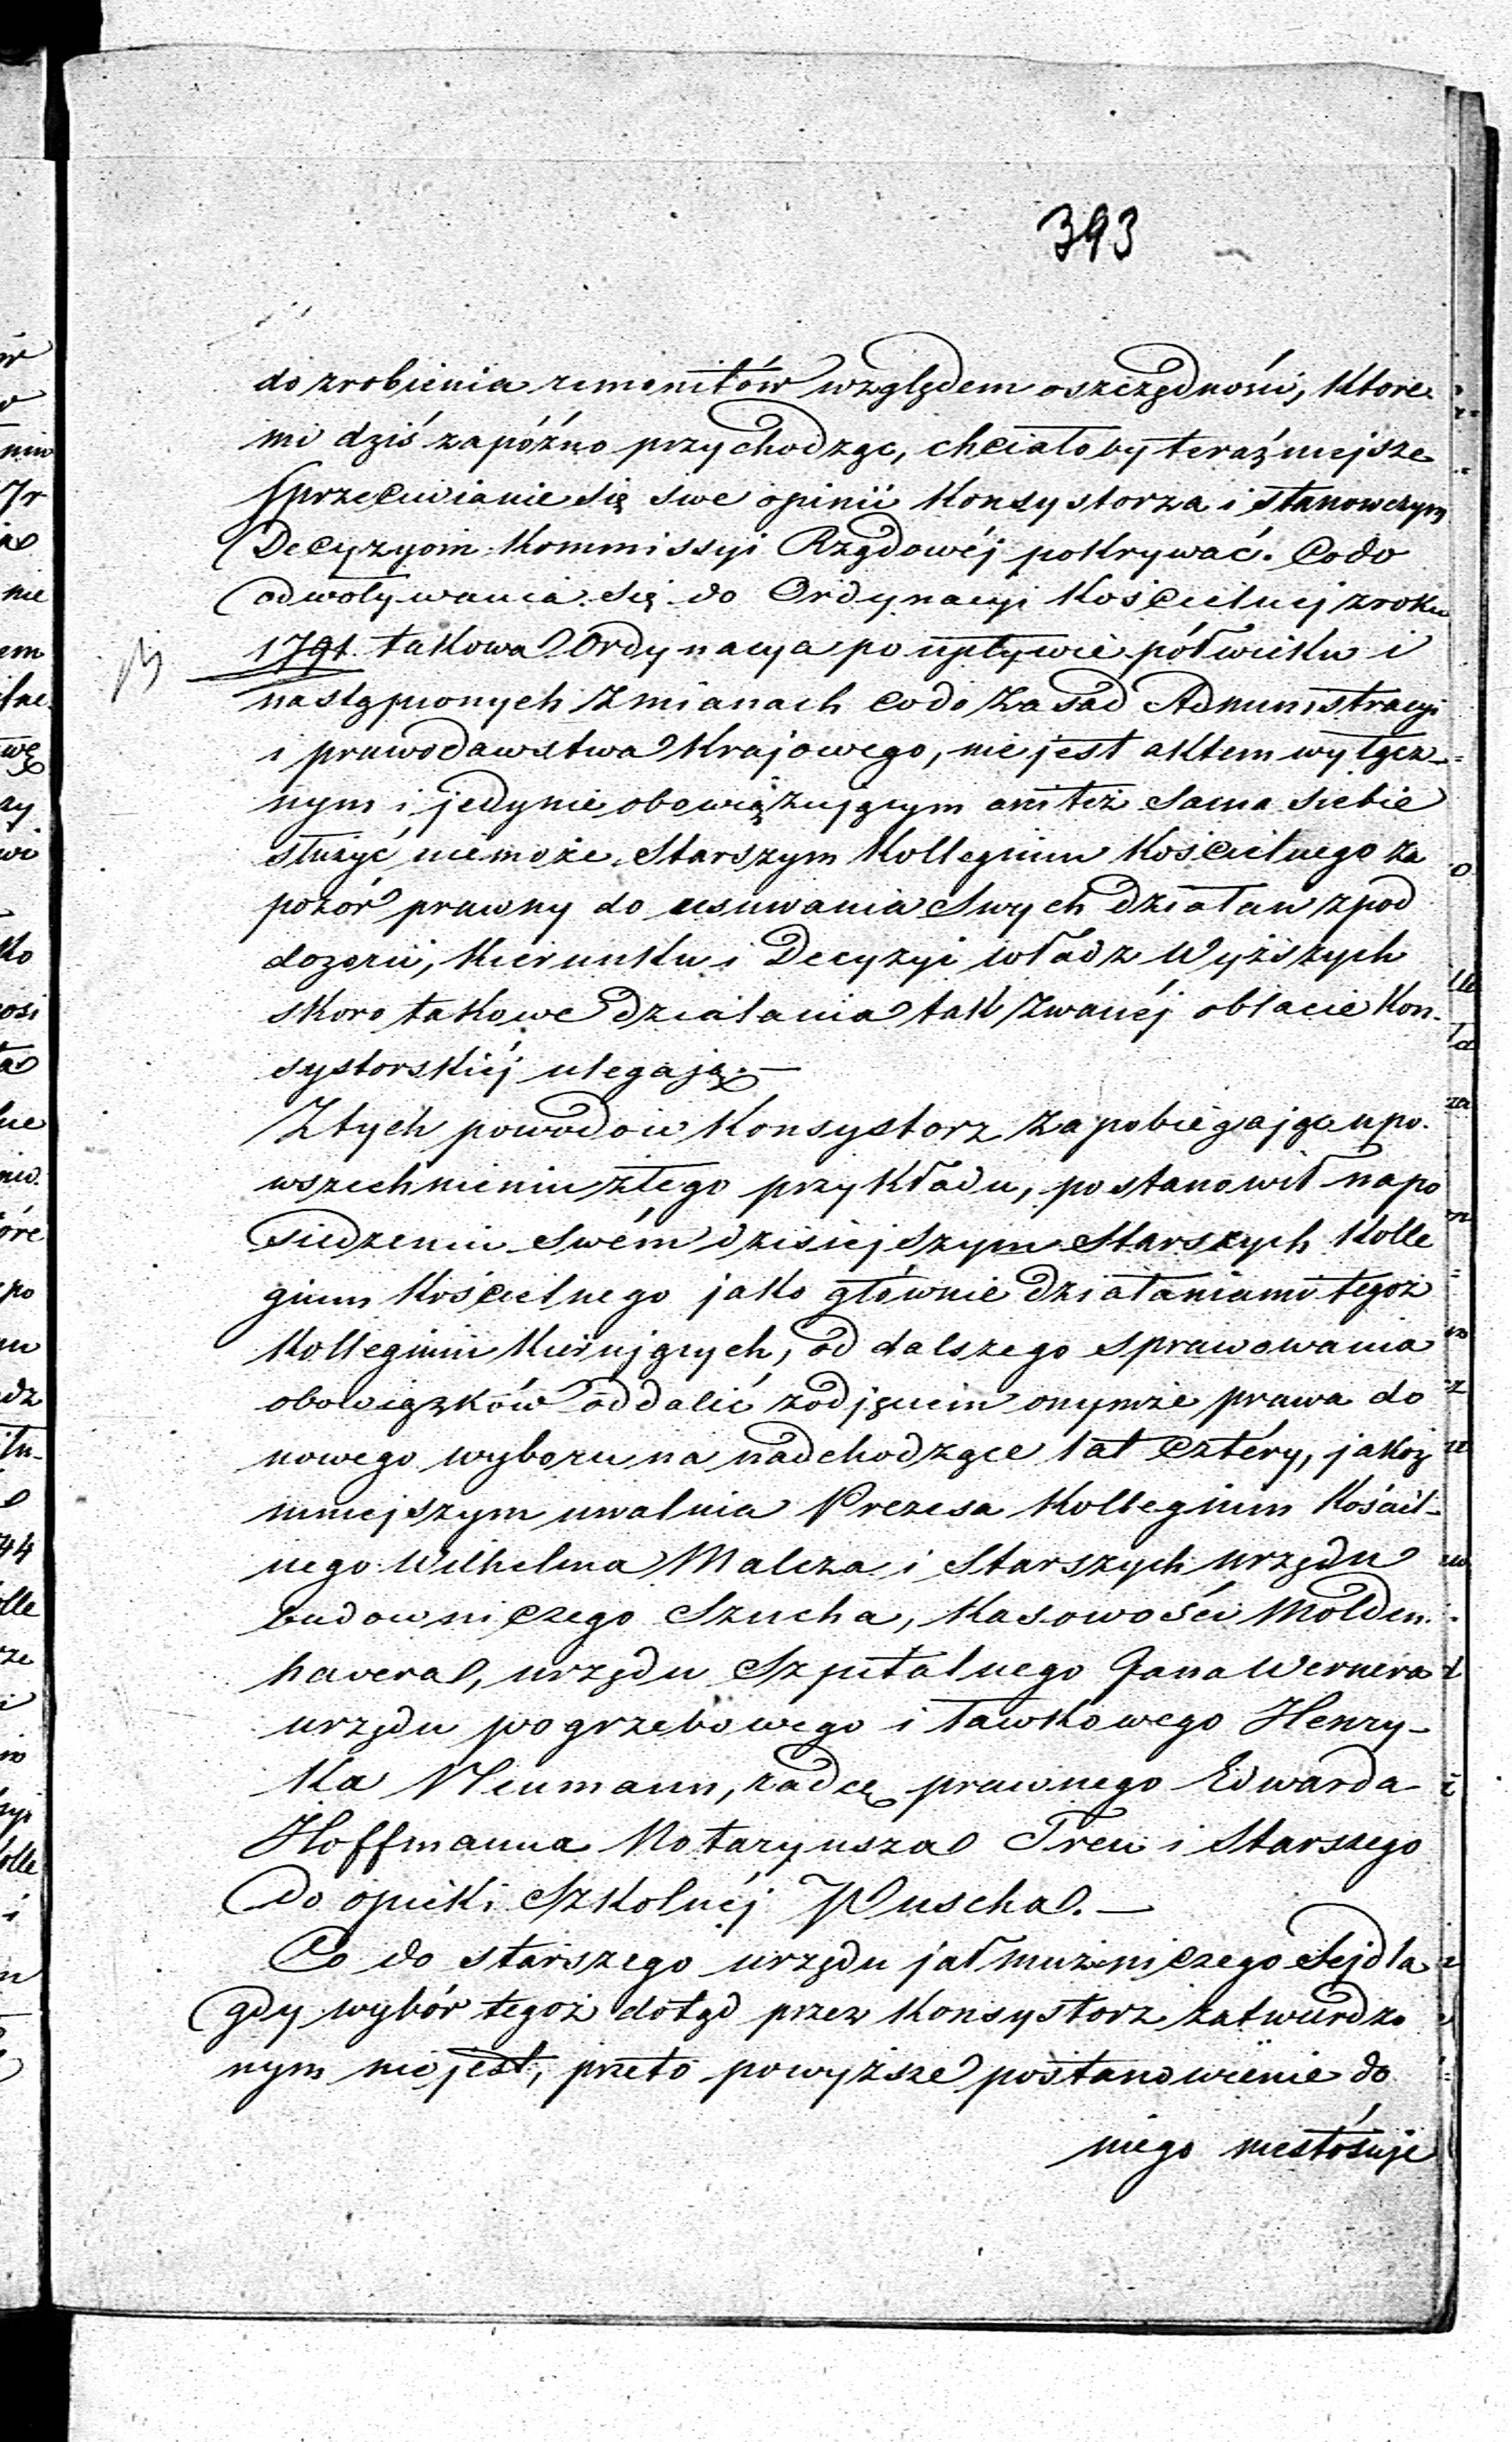 393
do zrobienia remonitów względem oszczędności, które
mi dziś zapóźno przychodząc, chciałoby teraźniejsze
Sprzeciwianie się swe opinii Konsystorza i stanowczym
Decyzyom Kommissyi Rządowéj pokrywać. Co do
odwoływania się do Ordynacyi Kościelnej z roku
1791. takowa Ordynacya po upływie półwieku i
nastąpionych zmianach co do zasad Administracyi
i prawodawstwa Krajowego, nie jest aktem wyłącz-
nym i jedynie obowiązującym ani też sama siebie
służyć niemoże Starszym Kollegium Kościelnego za
pozór prawny do usuwania Swych działań z pod
dozoru, Kierunku i Decyzyi władz Wyższych
skoro takowe działania tak zwanéj oblacie Kon-
systorskiéj ulegają.—
Z tych powodów Konsystorz zapobiegając upo-
wszechnieniu złego przykładu, postanowił na po
siedzeniu swém dzisiejszym Starszych Kolle
gium Kościelnego jako głównie działaniami tegoż
Kollegium Kierujących, od dalszego sprawowania
obowiązków oddalić z odjęciem onymże prawa do
nowego wyboru na nadchodzące lat cztéry, jakoż
niniejszym uwalnia Prezesa Kollegium Kościel-
nego Wilhelma Malcza i Starszych urzędu
budowniczego Szucha, Kasowości Molden-
havera, urzędu Szpitalnego Jana Wernera
urzędu pogrzebowego i ławkowego Henry-
ka Neumann, radcę prawnego Edwarda
Hoffmanna Notaryusza Treu i Starszego
do opieki Szkolnéj Puscha.—
Co do starszego urzędu jałmużniczego Sejdla
gdy wybór tegoż dotąd przez Konsystorz zatwierdzo
nym nie jest, przeto powyższe postanowienie do
niego niestósuje